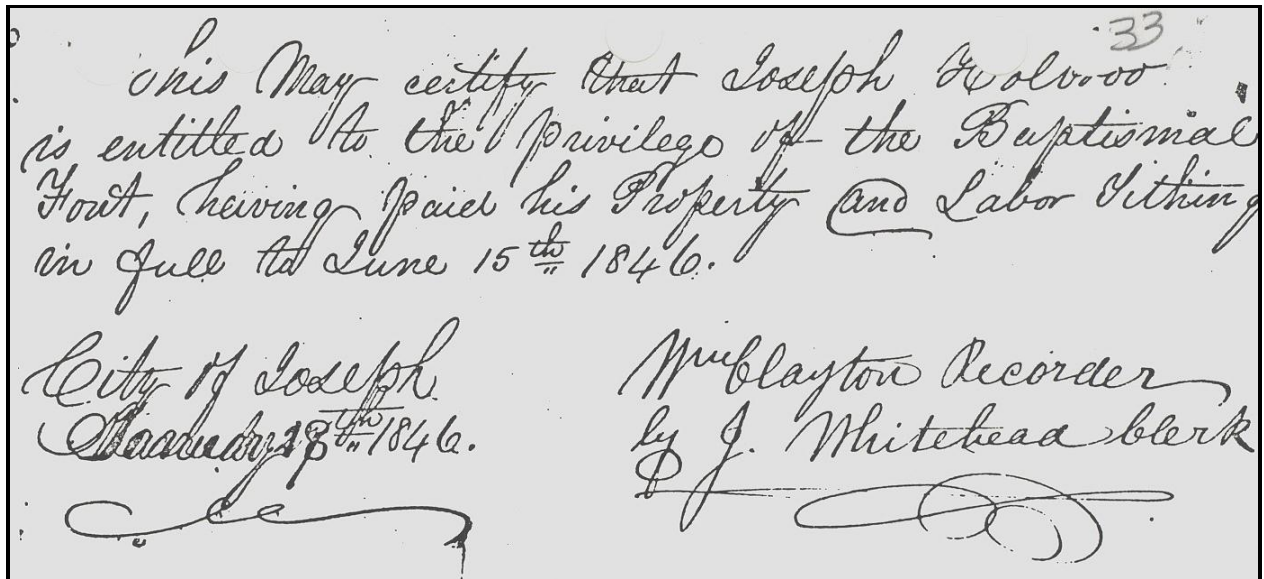 33
This May certify that Joseph Holbrook
is entitled to the Privilege of the Baptismal
Font, having paid his Property and Labor Tithing
in full to June 15th 1846.
City of Joseph
January 1846.
Wm Clayton Recorder
by J. Whitehead Clerk